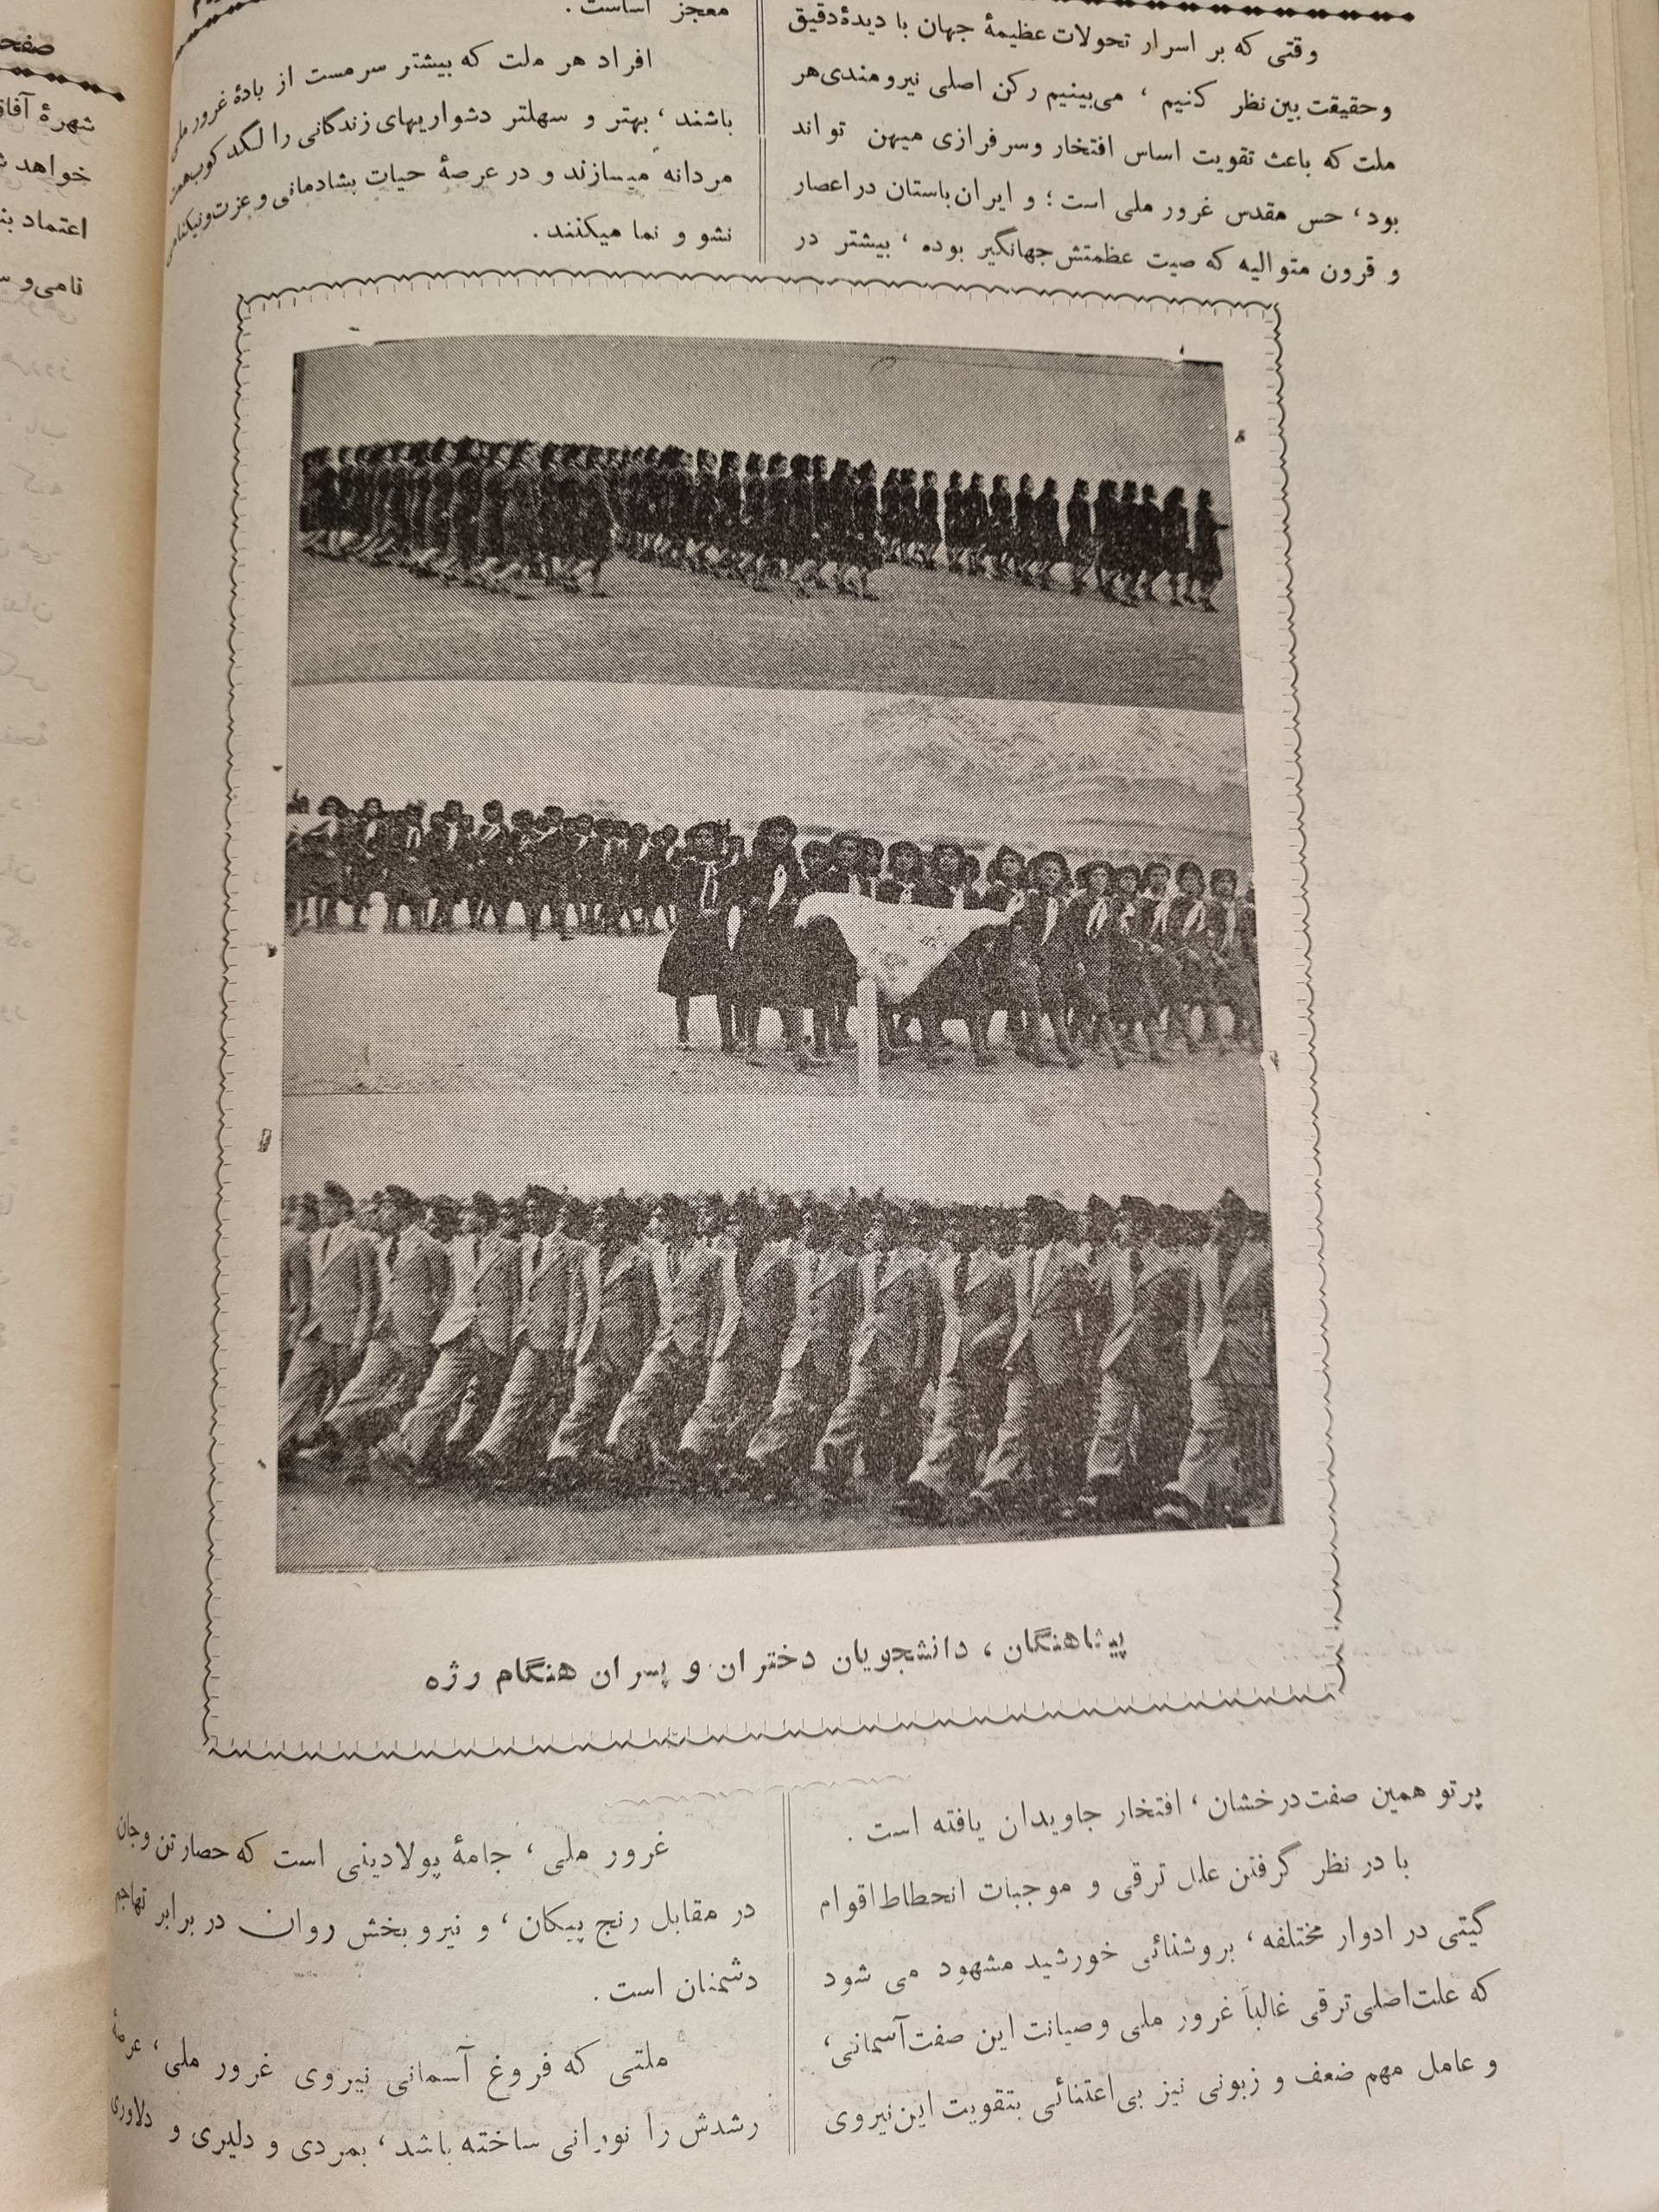 وقتی که بر اسرار تحولات عظیمهٔ جهان با دیدهٔ دقیق
و حقیقت بین نظر کنیم ، می‌بینیم رکن اصلی نیرومندی هر
ملت که باعث تقویت اساس افتخار و سرفرازی میهن تواند
بود، حس مقدس غرور ملی است ؛ و ایران باستان در اعصار
و قرون متوالیه که صیت عظمتش جهانگیر بوده ، بیشتر در
پرتو همین صفت درخشان ، افتخار جاویدان یافته است .
با در نظر گرفتن علل ترقی و موجبات انحطاط اقوام
گیتی در ادوار مختلفه ، بروشنائی خورشید مشهود می شود
که علت اصلی ترقی غالباً غرور ملی و صیانت این صفت آسمانی ،
و عامل مهم ضعف و زبونی نیز بی‌اعتنائی بتقویت این نیروی
معجز اساست .
افراد هر ملت که بیشتر سرمست از بادهٔ غرور ملی
باشند ، بهتر و سهلتر دشواریهای زندگانی را لگد کوب همت
مردانه میسازند و در عرصهٔ حیات بشادمانی و عزت و نیکنامی
نشو و نما میکنند .
غرور ملی ، جامهٔ پولادینی است که حصار تن و جان
در مقابل رنج پیکان ، و نیرو بخش روان در برابر تهاجم
دشمنان است .
ملتی که فروغ آسمانی نیروی غرور ملی ، عرصهٔ
رشدش را نورانی ساخته باشد ، بمردی و دلیری و دلاوری
پیشاهنگان ، دانشجویان دختران و پسران هنگام رژه
شهرهٔ
خواهد
اعتماد
نامی و